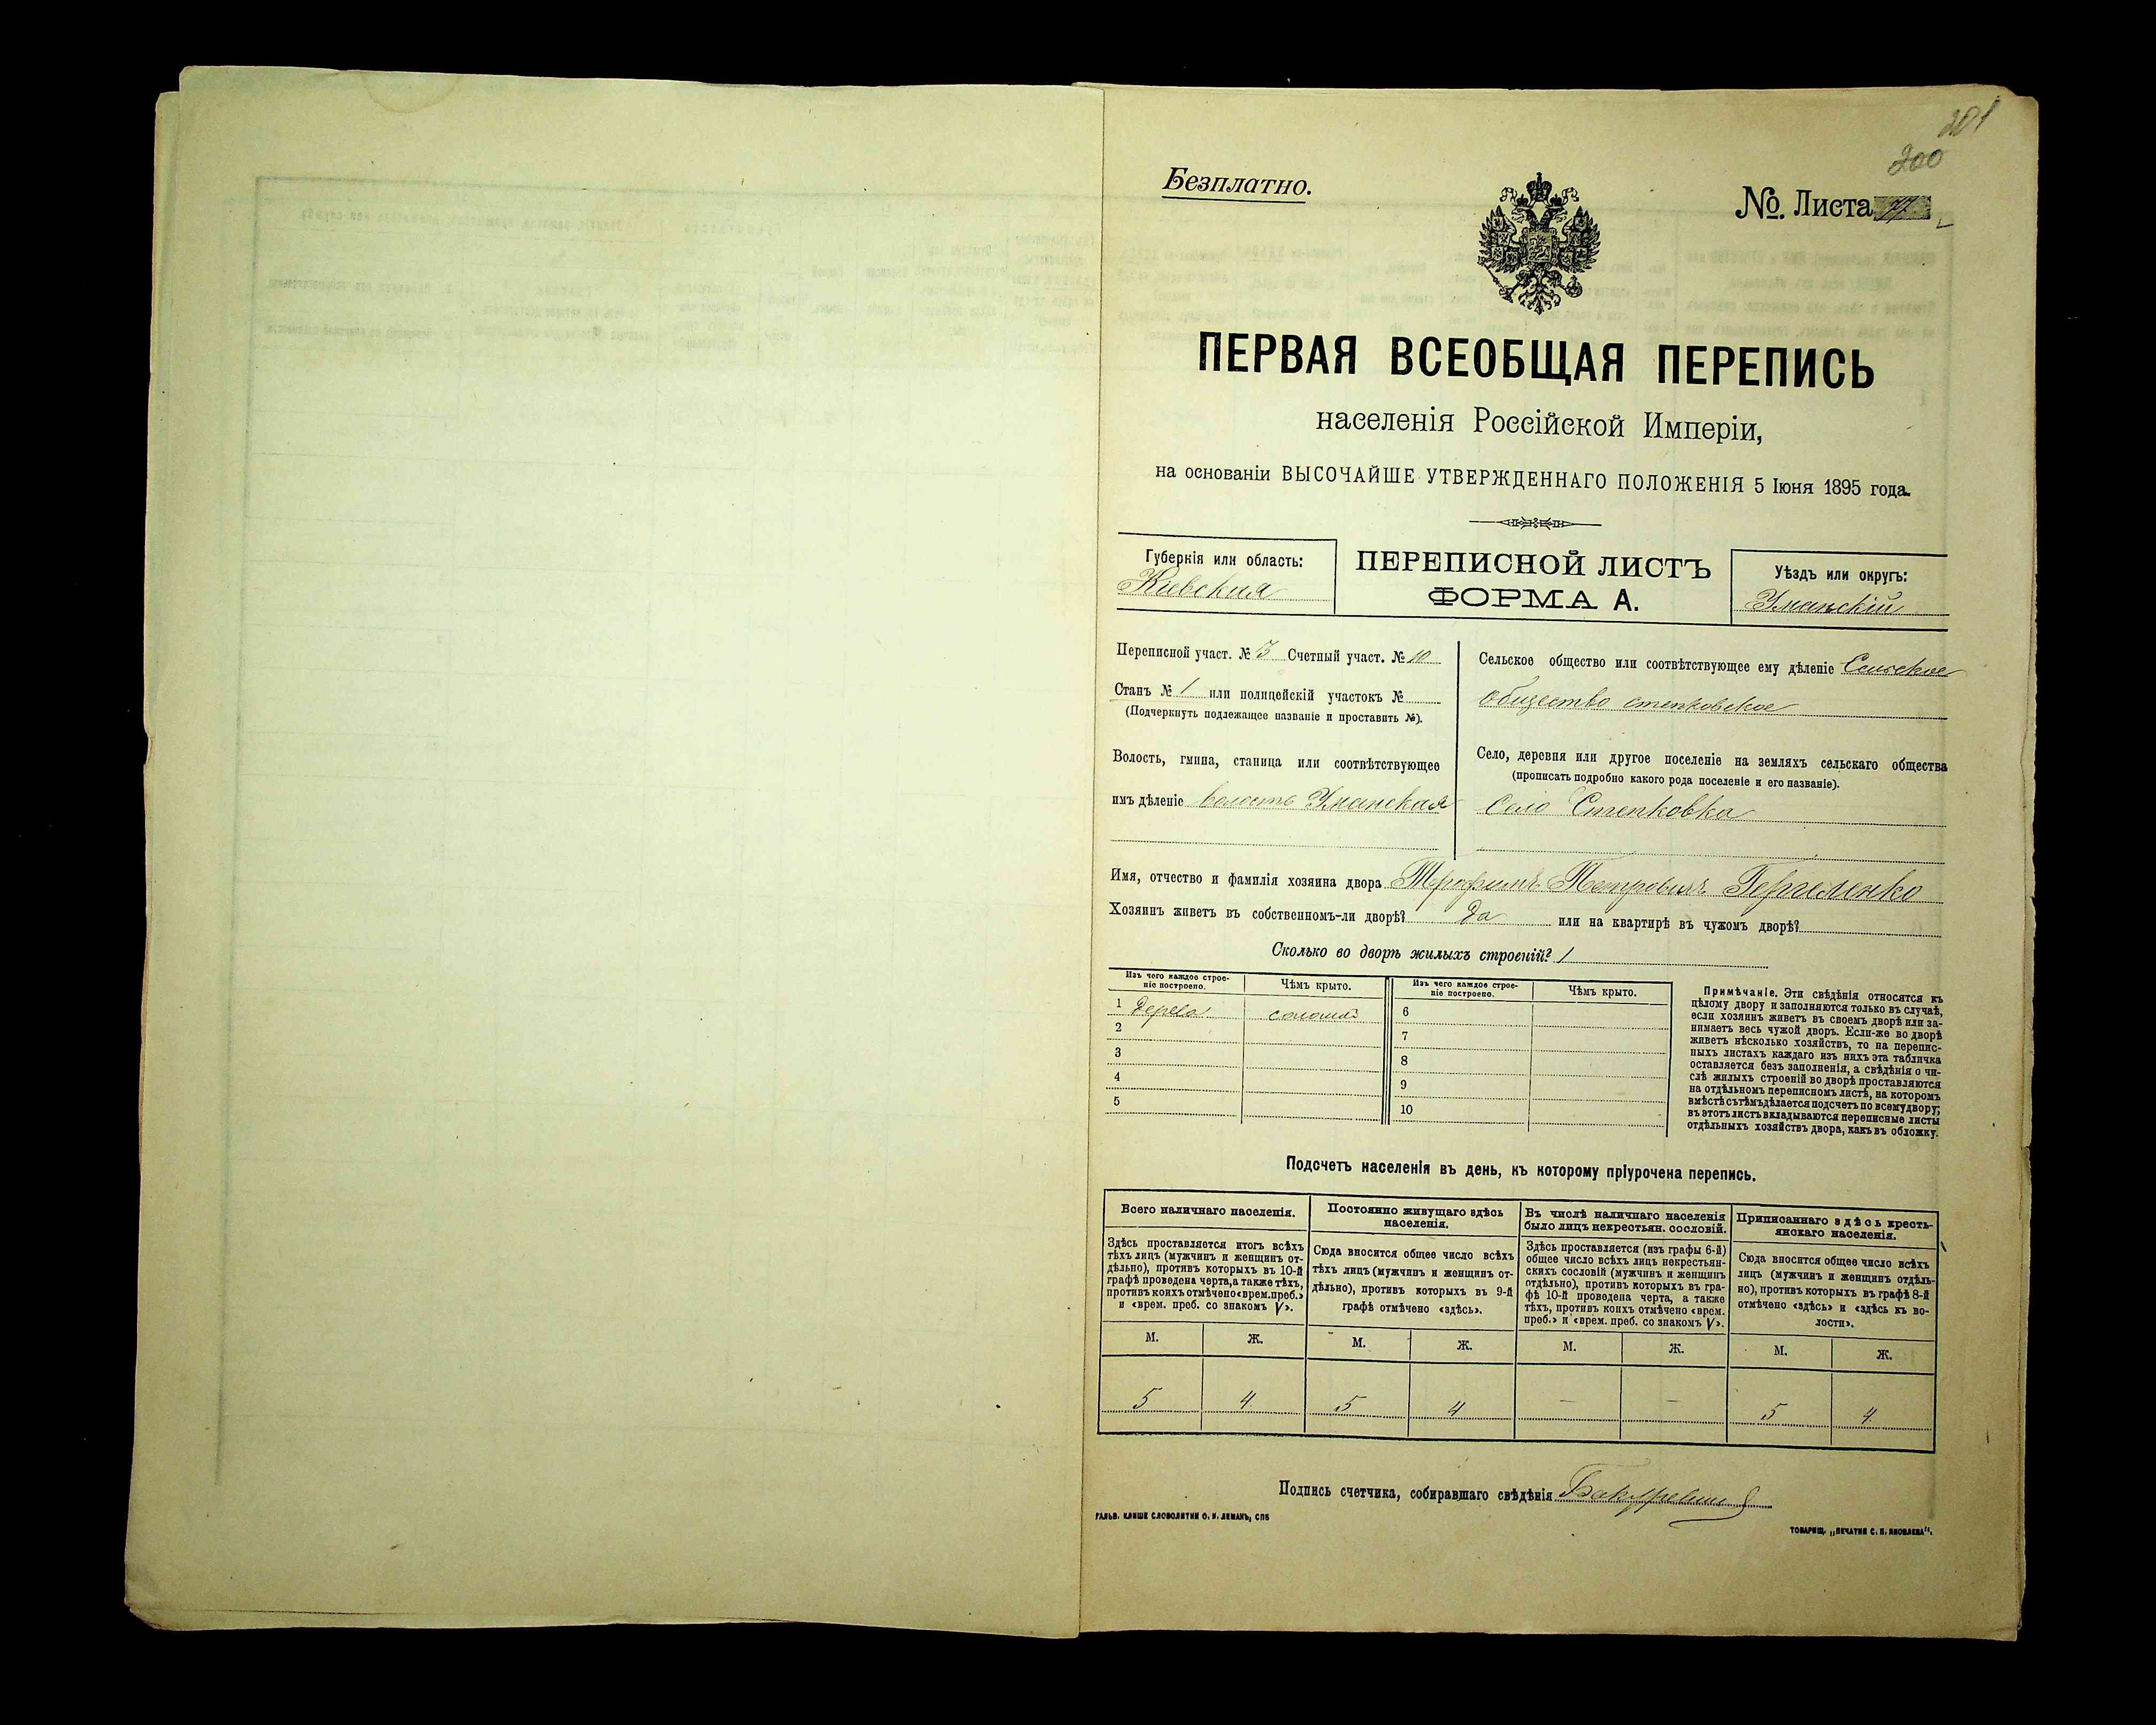 201
200
Безплатно.
№. Листа
ПЕРВАЯ ВСЕОБЩАЯ ПЕРЕПИСЬ
населенія Россійской Имперіи,
на основаніи ВЫСОЧАЙШЕ УТВЕРЖДЕННАГО ПОЛОЖЕНІЯ 5 Іюня 1895 года.
Губернія или область:
Кіевская
ПЕРЕПИСНОЙ ЛИСТЪ
ФОРМА А.
Уѣздъ или округъ:
Уманскій
Переписной участ. № 3 Счетный участ. № 10
Станъ № 1 или полицейскій участокъ №
(Подчеркнуть подлежащее названіе и проставить №).
Волость, гмина, станица или соотвѣтствующее
имъ дѣленіе волость Уманская
Сельское общество или соотвѣтствующее ему дѣленіе Сельское
общество степковское
Село, деревня или другое поселеніе на земляхъ сельскаго общества
(прописать подробно какого рода поселеніе и его названіе).
Село Степковка
Имя, отчество и фамилія хозяина двора Трофимъ Петровичъ
Хозяинъ живетъ въ собственномъ-ли дворѣ? Да или на квартирѣ въ чужомъ дворѣ?
Сколько во дворѣ жилыхъ строеній? 1
Изъ чего каждое строе-
ніе построено.
Чѣмъ крыто.
Изъ чего каждое строе-
ніе построено.
Чѣмъ крыто.
1 дерева соломой 6
2 7
3 8
4 9
5 10
Примѣчаніе. Эти свѣдѣнія относятся къ
цѣлому двору и заполняются только въ случаѣ,
если хозяинъ живетъ въ своемъ дворѣ или за-
нимаетъ весь чужой дворъ. Если-же во дворѣ
живетъ нѣсколько хозяйствъ, то на перепис-
ныхъ листахъ каждаго изъ нихъ эта табличка
оставляется безъ заполненія, а свѣдѣнія о чи-
слѣ жилыхъ строеній во дворѣ проставляются
на отдѣльномъ переписномъ листѣ, на которомъ
вмѣстѣ съ тѣмъ дѣлается подсчетъ по всему двору;
въ этотъ листъ вкладываются переписные листы
отдѣльныхъ хозяйствъ двора, какъ въ обложку.
Подсчетъ населенія въ день, къ которому пріурочена перепись.
Всего наличнаго населенія.
Здѣсь проставляется итогъ всѣхъ
тѣхъ лицъ (мужчинъ и женщинъ от-
дѣльно), противъ которыхъ въ 10-й
графѣ проведена черта, а также тѣхъ,
противъ коихъ отмѣчено «врем. преб.»
и «врем. преб. со знакомъ V».
М. Ж.
5 4
Постоянно живущаго здѣсь
населенія.
Сюда вносится общее число всѣхъ
тѣхъ лицъ (мужчинъ и женщинъ от-
дѣльно), противъ которыхъ въ 9-й
графѣ отмѣчено «здѣсь».
М. Ж.
5 4
Въ числѣ наличнаго населенія
было лицъ некрестьян. сословій.
Здѣсь проставляется (изъ графы 6-й)
общее число всѣхъ лицъ некрестьян-
скихъ сословій (мужчинъ и женщинъ
отдѣльно), противъ которыхъ въ гра-
фѣ 10-й проведена черта, а также
тѣхъ, противъ коихъ отмѣчено «врем.
преб.» и «врем. преб. со знакомъ V».
М. Ж.
— —
Приписаннаго здѣсь кресть-
янскаго населенія.
Сюда вносится общее число всѣхъ
лицъ (мужчинъ и женщинъ отдѣль-
но), противъ которыхъ въ графѣ 8-й
отмѣчено «здѣсь» и «здѣсь къ во-
лости».
М. Ж.
5 4
Подпись счетчика, собиравшаго свѣдѣнія
ГАЛЬВ. КЛИШЕ СЛОВОЛИТНИ О. И. ЛЕМАНЪ, СПБ
ТОВАРИЩ. „ПЕЧАТНЯ С. П. ЯКОВЛЕВА".